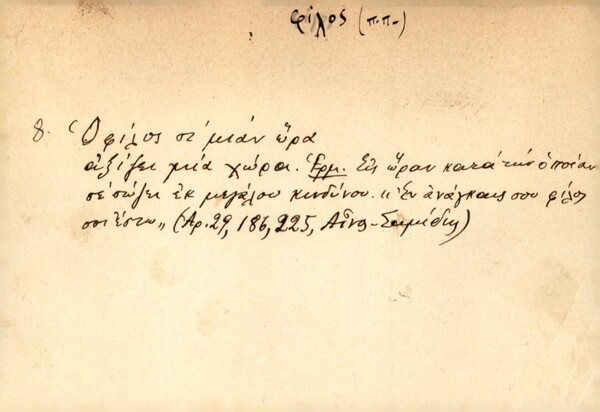 φίλος (π.π.)
8. Ὁ φίλος σὲ μιάν ὥρα
ἀξίζει μιά χώρα. Ἑρμ. Εἰς ὥραν κατά τήν ὁποίαν
σέ σώζει ἐκ μεγάλου κινδύνου. „Ἐν ἀνάγκαις σου φίλος
σοι ἔστω„ (Ἀρ. 29, 186, 225, Αἶνος-Σαμίδης)